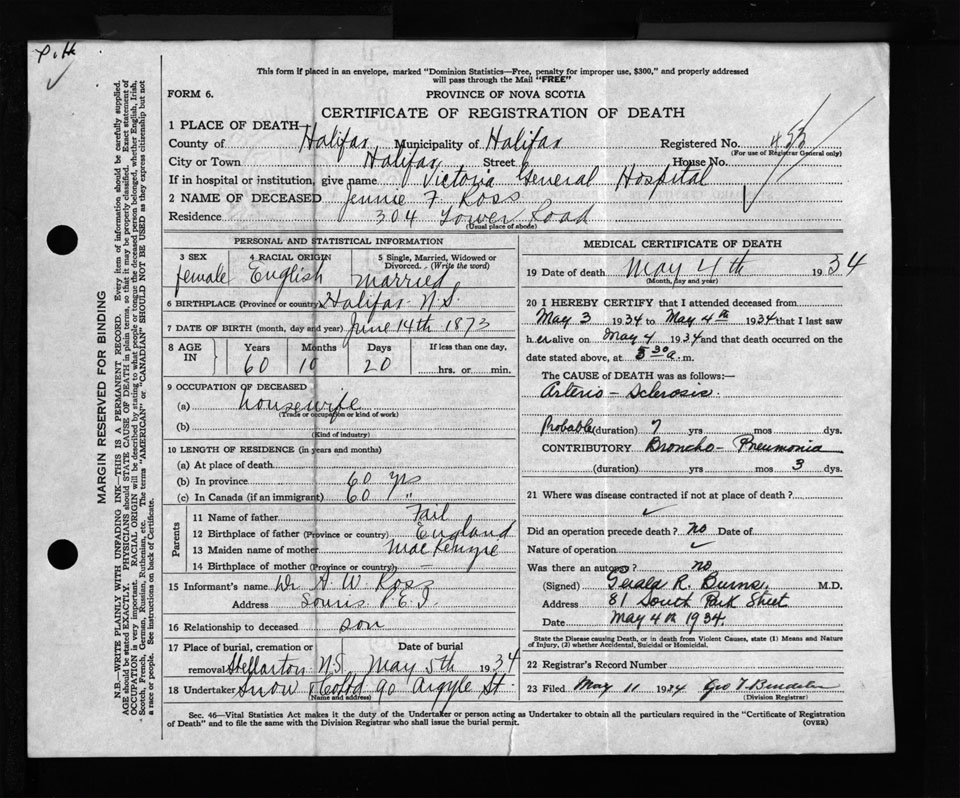 P.H.
This form if placed in an envelope, marked "Dominion Statistics—Free, penalty for improper use, $300," and properly addressed
will pass through the Mail "FREE"
FORM 6.
PROVINCE OF NOVA SCOTIA
CERTIFICATE OF REGISTRATION OF DEATH
1 PLACE OF DEATH—
County of Halifax Municipality of Halifax Registered No. 453
(For use of Registrar General only)
City or Town Halifax Street House No.
If in hospital or institution, give name Victoria General Hospital
2 NAME OF DECEASED Jennie F. Ross
Residence 304 Tower Road
(Usual place of abode)
PERSONAL AND STATISTICAL INFORMATION
3 SEX 4 RACIAL ORIGIN 5 Single, Married, Widowed or Divorced. (Write the word)
female English married
6 BIRTHPLACE (Province or country) Halifax N.S.
7 DATE OF BIRTH (month, day and year) June 14th 1873
8 AGE IN Years Months Days If less than one day,
60 10 20 hrs. or min.
9 OCCUPATION OF DECEASED
(a) housewife
(Trade or occupation or kind of work)
(b)
(Kind of industry)
10 LENGTH OF RESIDENCE (in years and months)
(a) At place of death
(b) In province 60 yrs
(c) In Canada (if an immigrant) 60 "
Parents
11 Name of father Fail
12 Birthplace of father (Province or country) England
13 Maiden name of mother MacKenzie
14 Birthplace of mother (Province or country) —
15 Informant's name Dr. A. W. Ross
Address Souris P.E.I.
16 Relationship to deceased son
17 Place of burial, cremation or removal Date of burial
Stellarton N.S. May 5th 1934
18 Undertaker Snow & Co Ltd 90 Argyle St.
(Name and address)
MEDICAL CERTIFICATE OF DEATH
19 Date of death May 4th 1934
(Month, day and year)
20 I HEREBY CERTIFY that I attended deceased from
May 3 1934 to May 4th 1934 that I last saw
h er alive on May 4 1934 and that death occurred on the
date stated above, at 5 30 a. m.
The CAUSE of DEATH was as follows:—
Arterio - Sclerosis.
Probable (duration) 7 yrs mos dys.
CONTRIBUTORY Broncho- Pneumonia
(duration) yrs mos 3 dys.
21 Where was disease contracted if not at place of death?
Did an operation precede death? no Date of
Nature of operation
Was there an autopsy? no
(Signed) Gerald R. Burns, M.D.
Address 81 South Park Street
Date May 4th 1934.
State the Disease causing Death, or in death from Violent Causes, state (1) Means and Nature
of Injury, (2) whether Accidental, Suicidal or Homicidal.
22 Registrar's Record Number
23 Filed May 11 1934
(Division Registrar)
Sec. 46—Vital Statistics Act makes it the duty of the Undertaker or person acting as Undertaker to obtain all the particulars required in the "Certificate of Registration
of Death" and to file the same with the Division Registrar who shall issue the burial permit. (OVER)
MARGIN RESERVED FOR BINDING
N.B.—WRITE PLAINLY WITH UNFADING INK—THIS IS A PERMANENT RECORD. Every item of information should be carefully supplied.
AGE should be stated EXACTLY. PHYSICIANS should STATE CAUSE OF DEATH in plain terms, so that it may be properly classified. Exact statement of
OCCUPATION is very important. RACIAL ORIGIN will be described by stating to what people or tongue the deceased person belonged, whether English, Irish,
Scotch, French, German, Russian, Ruthenian, etc. The terms "AMERICAN" or "CANADIAN" SHOULD NOT BE USED as they express citizenship but not
a race or people. See instructions on back of Certificate.